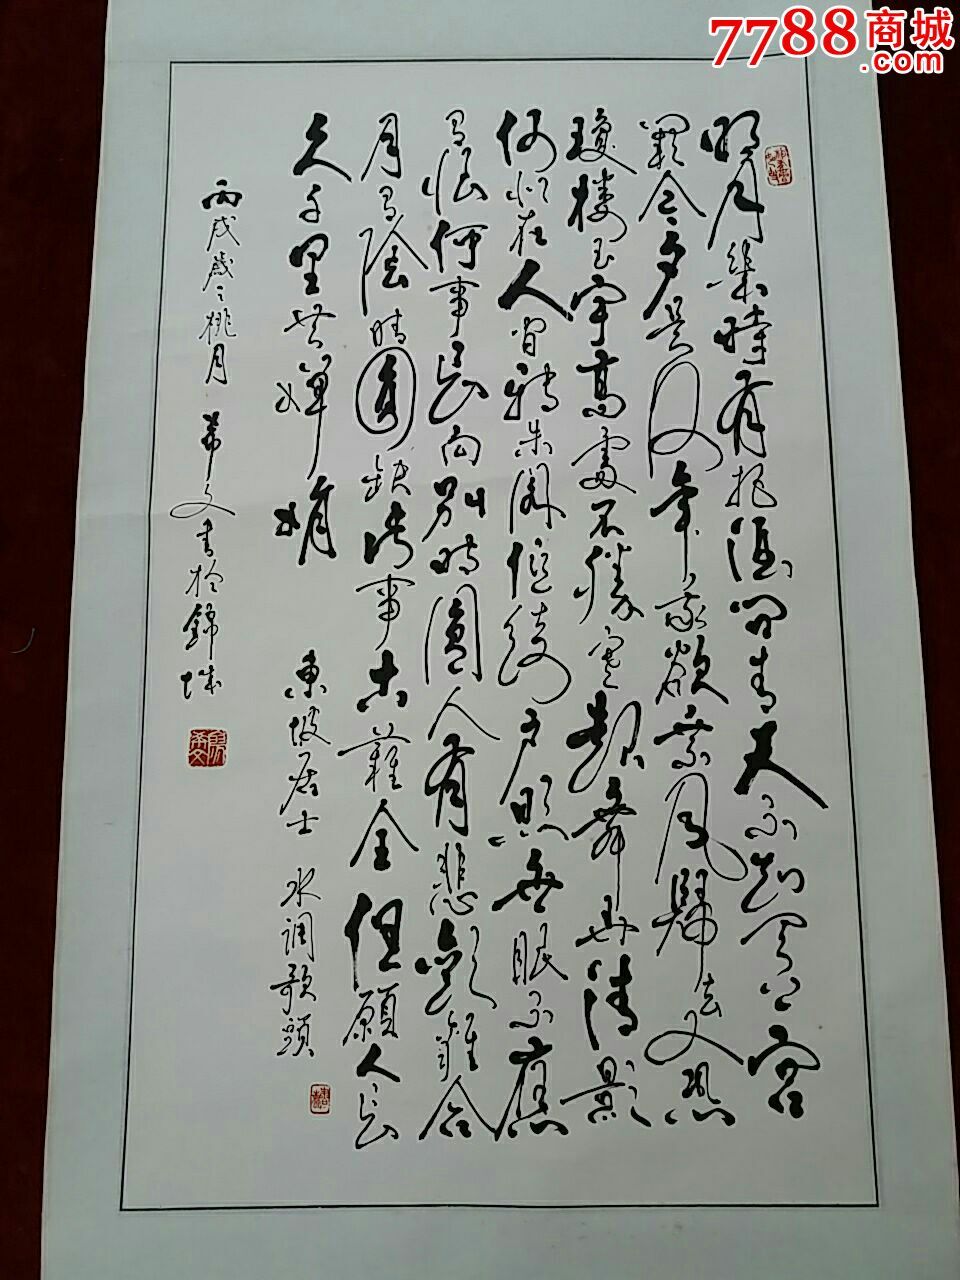 7788商城
.com
明月幾時有把酒问青天不知天上宫
闕今夕是何年我欲乘风歸去又恐
瓊楼玉宇高處不勝寒起舞弄清影
何似在人间转朱阁低绮户照無眠不應
有恨何事长向别時圓人有悲歡離合
月有陰晴圆缺此事古難全但願人长
久千里共嬋娟
東坡居士 水调歌頭
丙戌歲之桃月 希文書於錦城